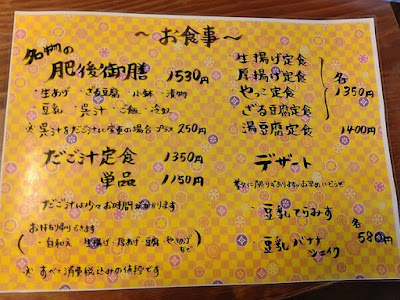 ～お食事～
名物の
肥後御膳 1530円
・生あげ ・ざる豆腐 ・小鉢 ・漬物
・豆乳 ・呉汁 ・ご飯 ・冷奴
※呉汁をだご汁に変更の場合プラス250円
だご汁定食 1350円
単品 1150円
だご汁は少々お時間がかかります
お持ち帰りできます
(・白和え 生揚げ・厚あげ・豆腐
など)
※すべて消費税込みの価格です
生揚げ定食
厚揚げ定食
やっこ定食
ざる豆腐定食
各
1350円
湯豆腐定食 1400円
デザート
・豆乳てらみす
・豆乳バナナ
シェイク
各
580円